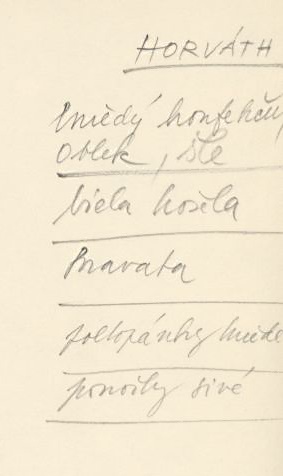 HORVÁTH
hnedý konfekčný
oblek, šle
biela košela
kravata
poltopánky hnede
ponožky sivé